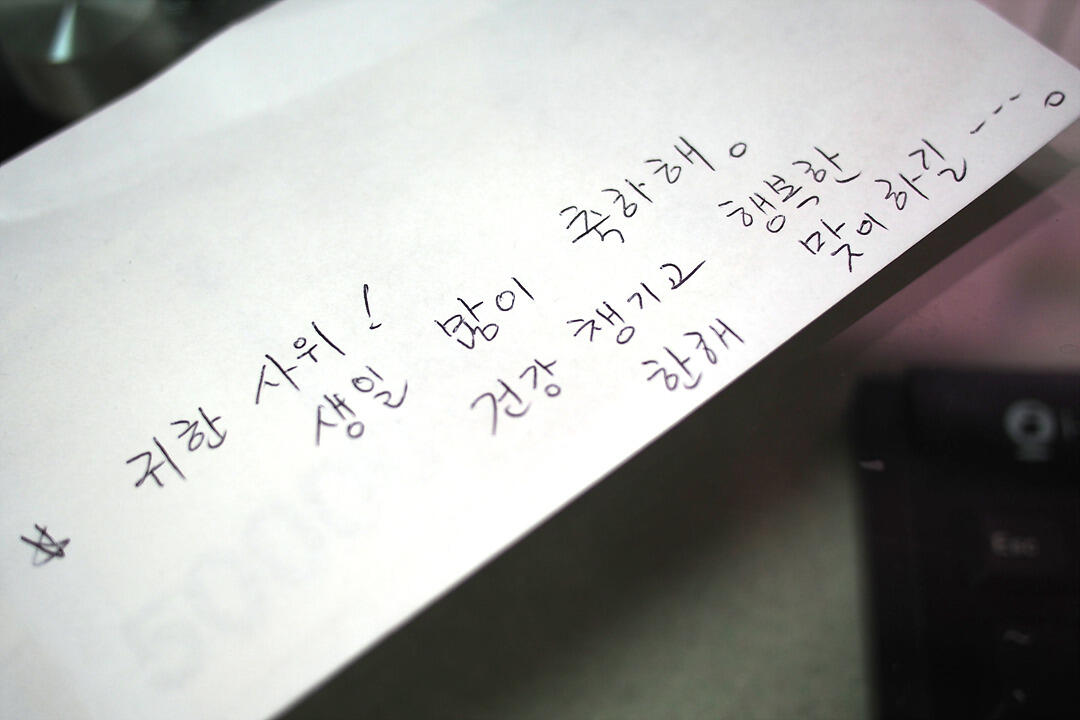 ☆ 귀한 사위!
생일 많이 축하해。
건강 챙기고 행복한
한해 맞이하길 ---。
Esc
~